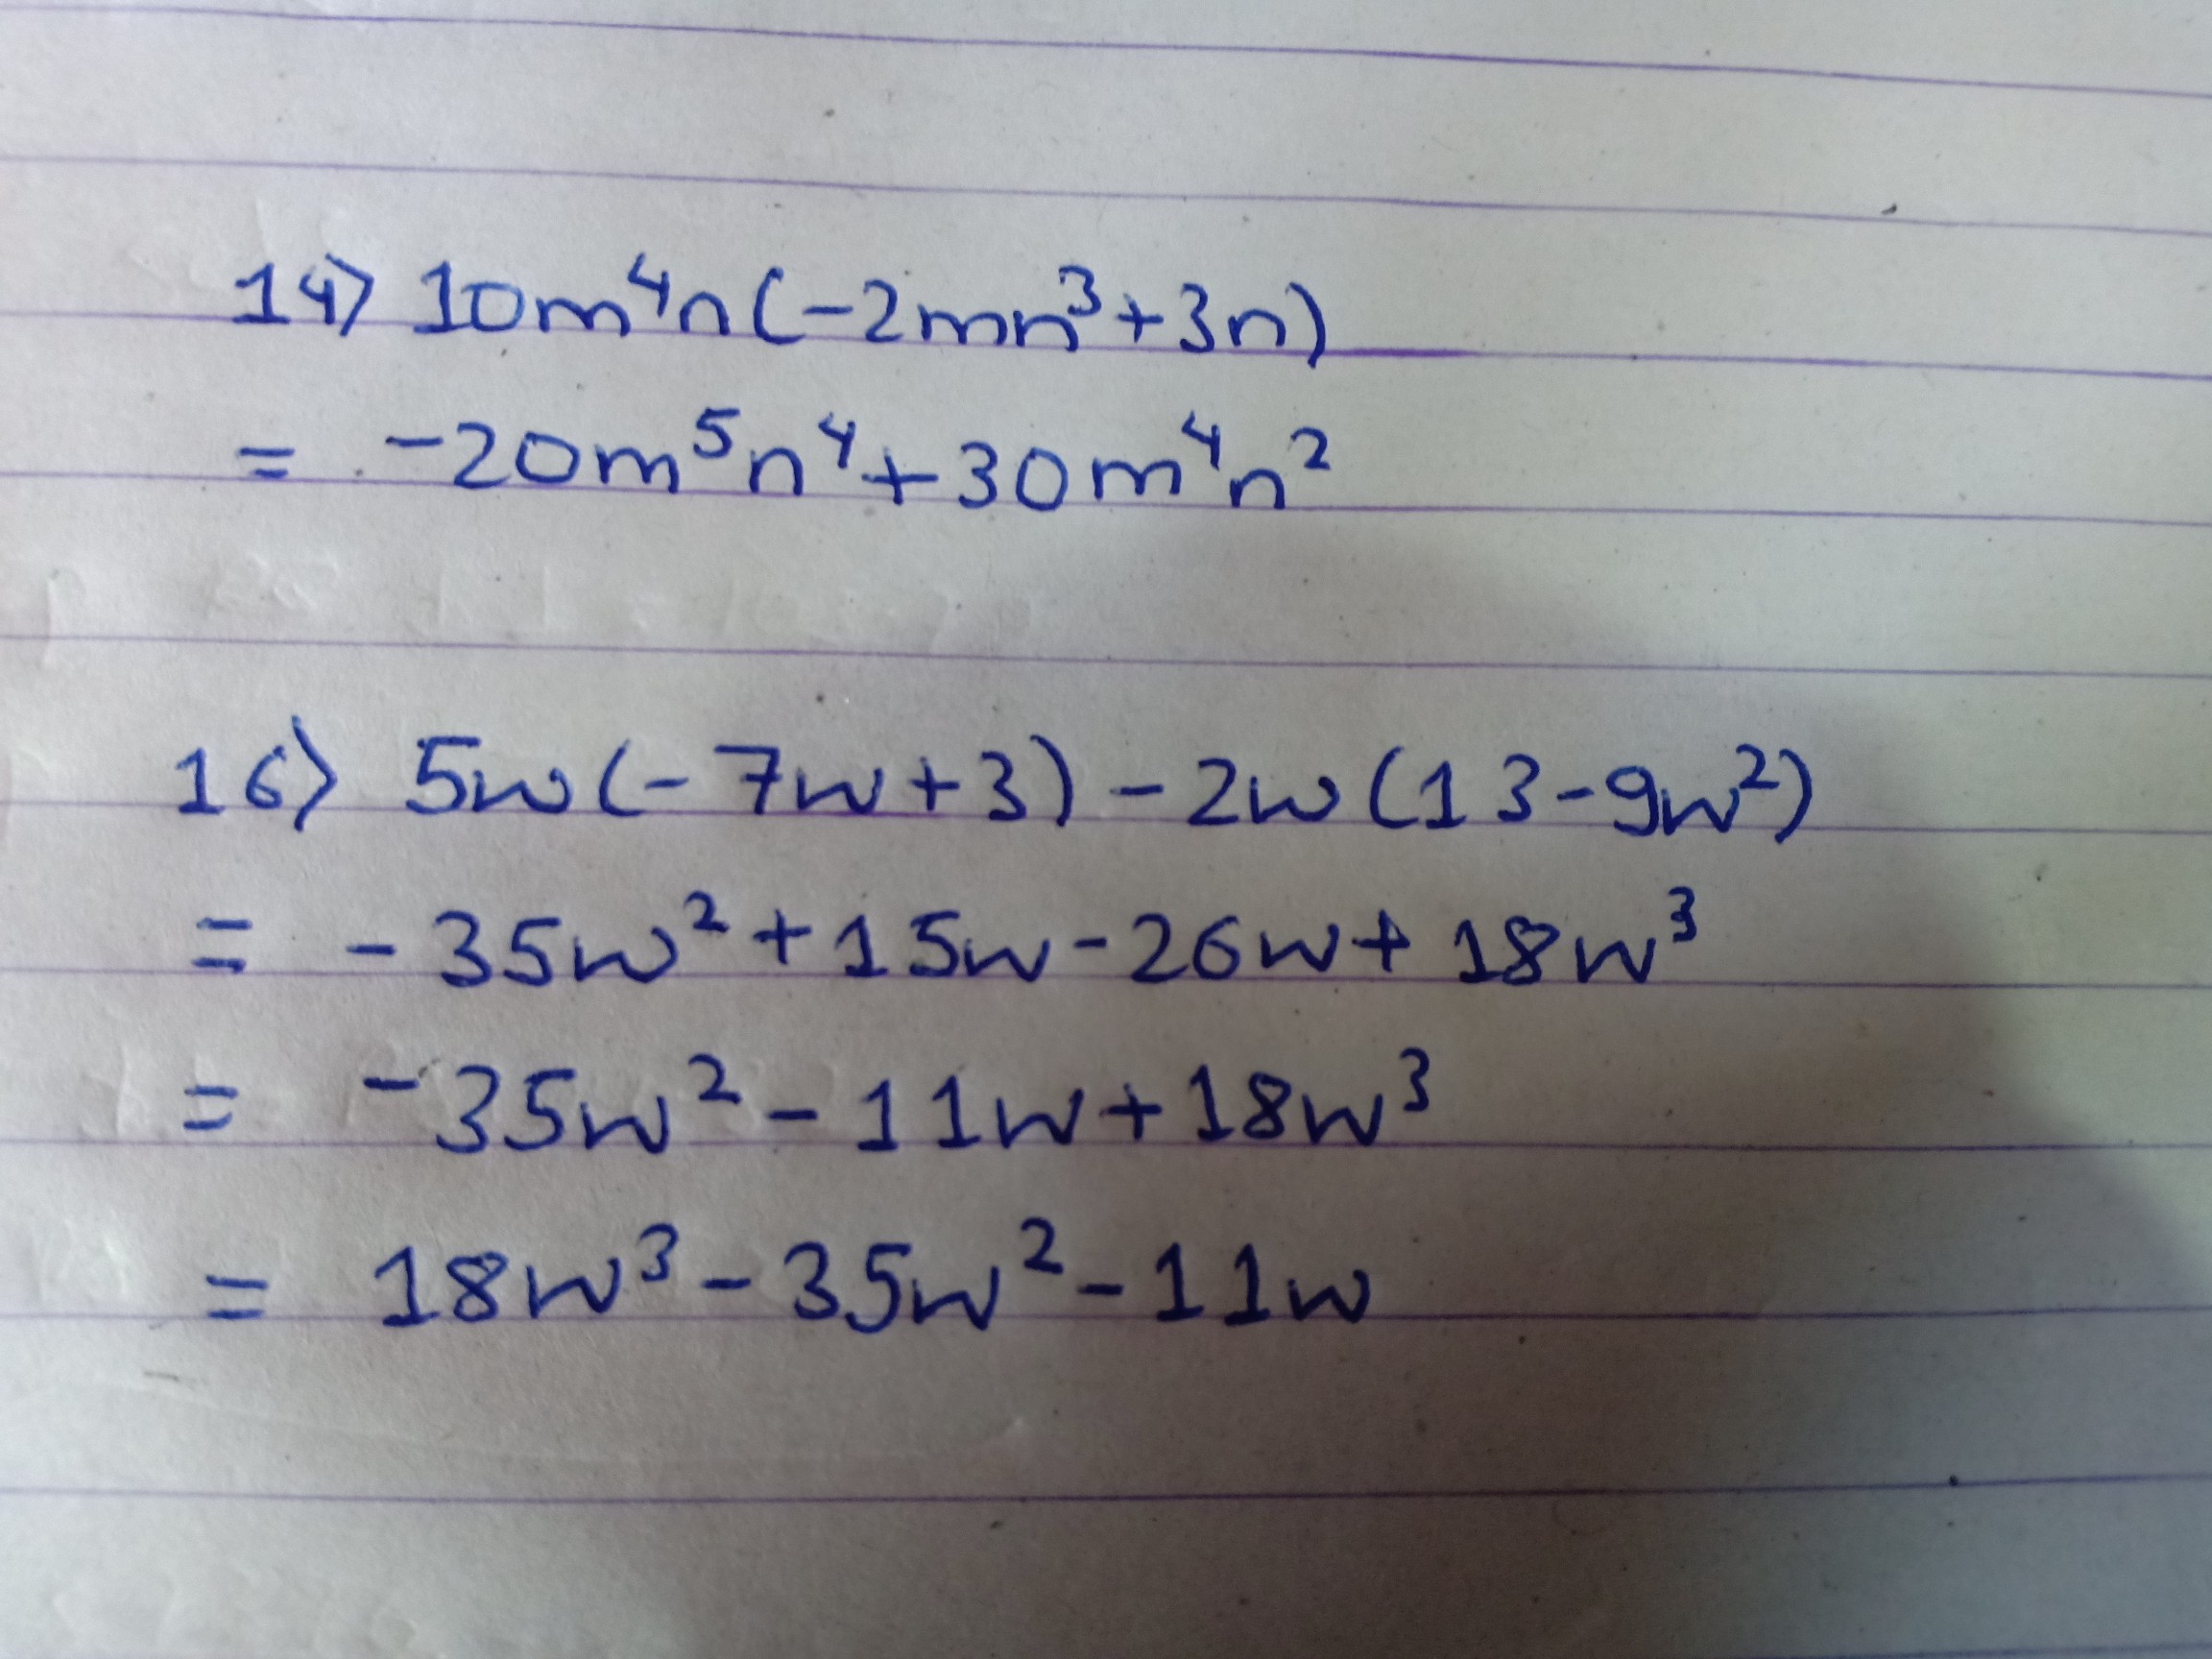 14) 10m⁴n(-2mn³+3n)
= -20m⁵n⁴+30m⁴n²
16) 5w(-7w+3)-2w(13-9w²)
= -35w²+15w-26w+18w³
= -35w²-11w+18w³
= 18w³-35w²-11w